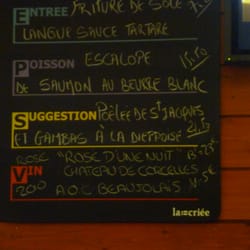 ENTREE FRITURE DE SOLE
LANGUE SAUCE TARTARE
POISSON ESCALOPE
DE SAUMON AU BEURRE BLANC
SUGGESTION POÊLÉE DE ST JACQUES
ET GAMBAS À LA DIEPPOISE
ROSE "ROSE D'UNE NUIT"
VIN CHATEAU DE CORCELLES
2010 A.O.C BEAUJOLAIS
la criée